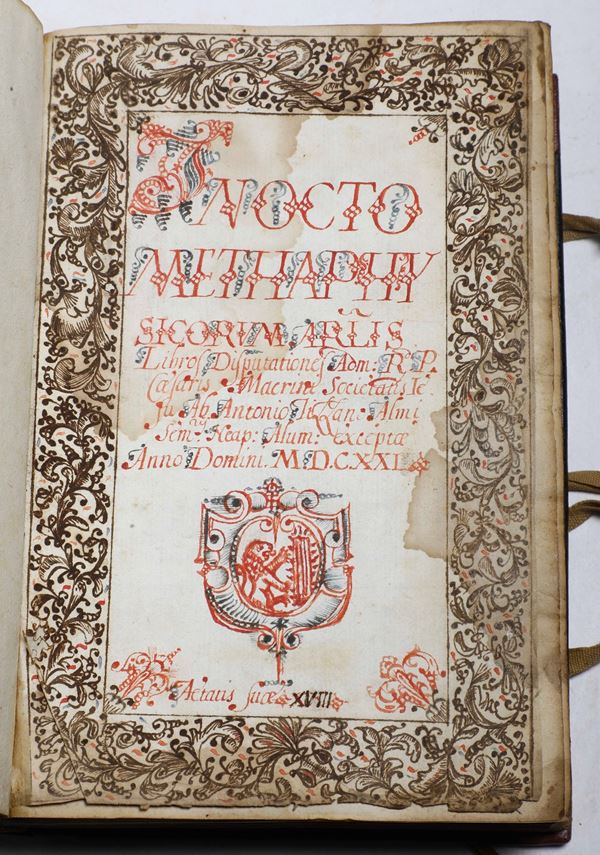 IN OCTO
METHAPHY
SICORUM, ARLIS
Libros Disputationes Adm: R.di P.
Cæsaris Macrini Societatis Ie
su Ab Antonio
Sem: Neap: Alum: exceptæ
Anno Domini. M.D.C.XXI.
Aetatis suæ XVIII